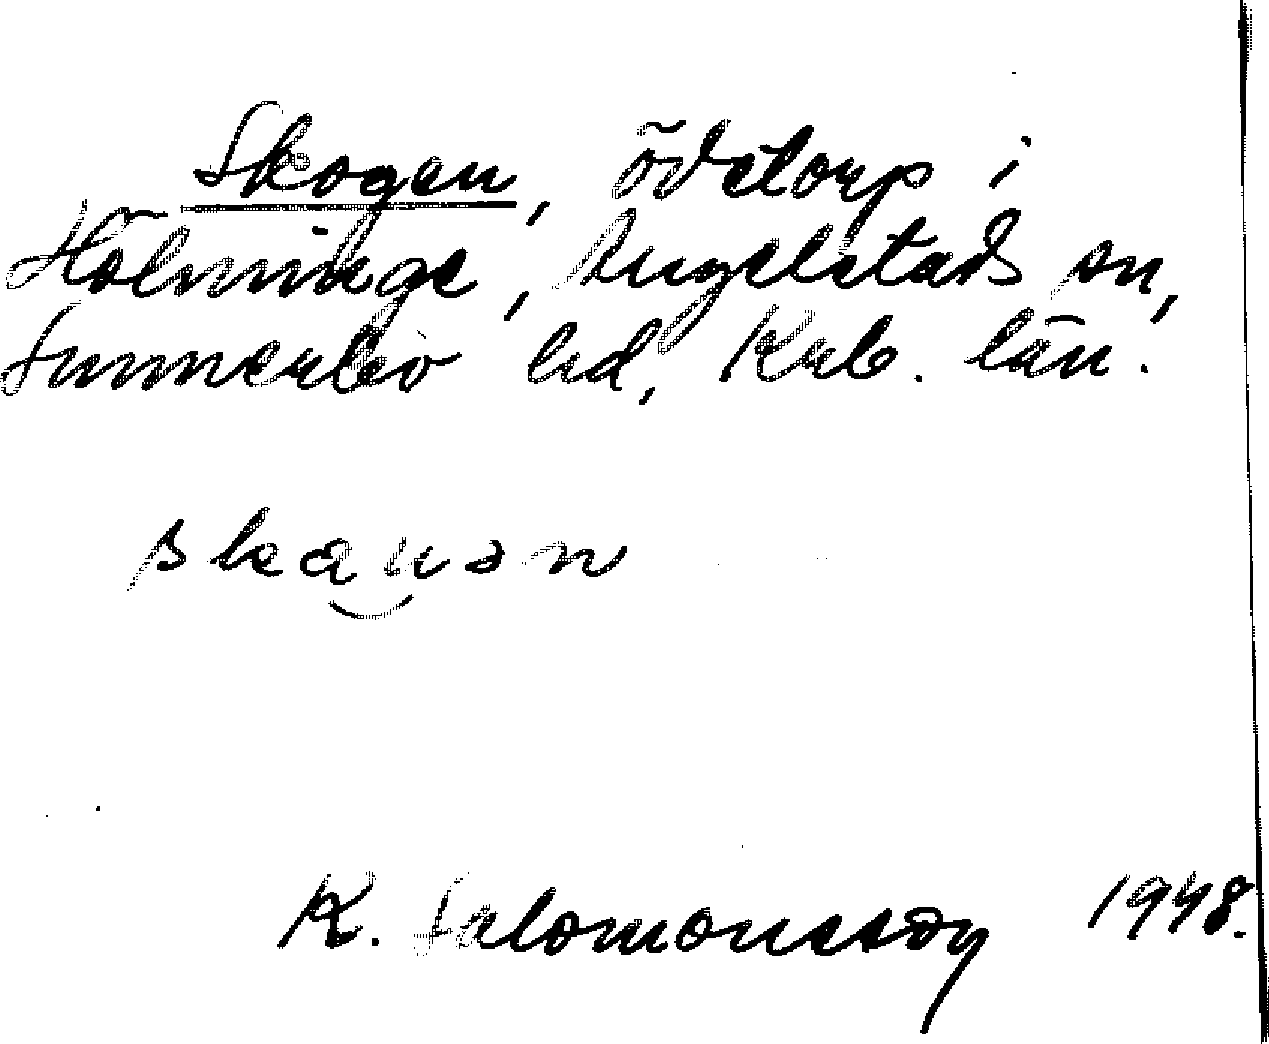 Skogen, ödetorp i
Hölminge, Angelstads sn,
Sunnerbo hd, Krb. län.
skauən
K. Salomonsson 1948.